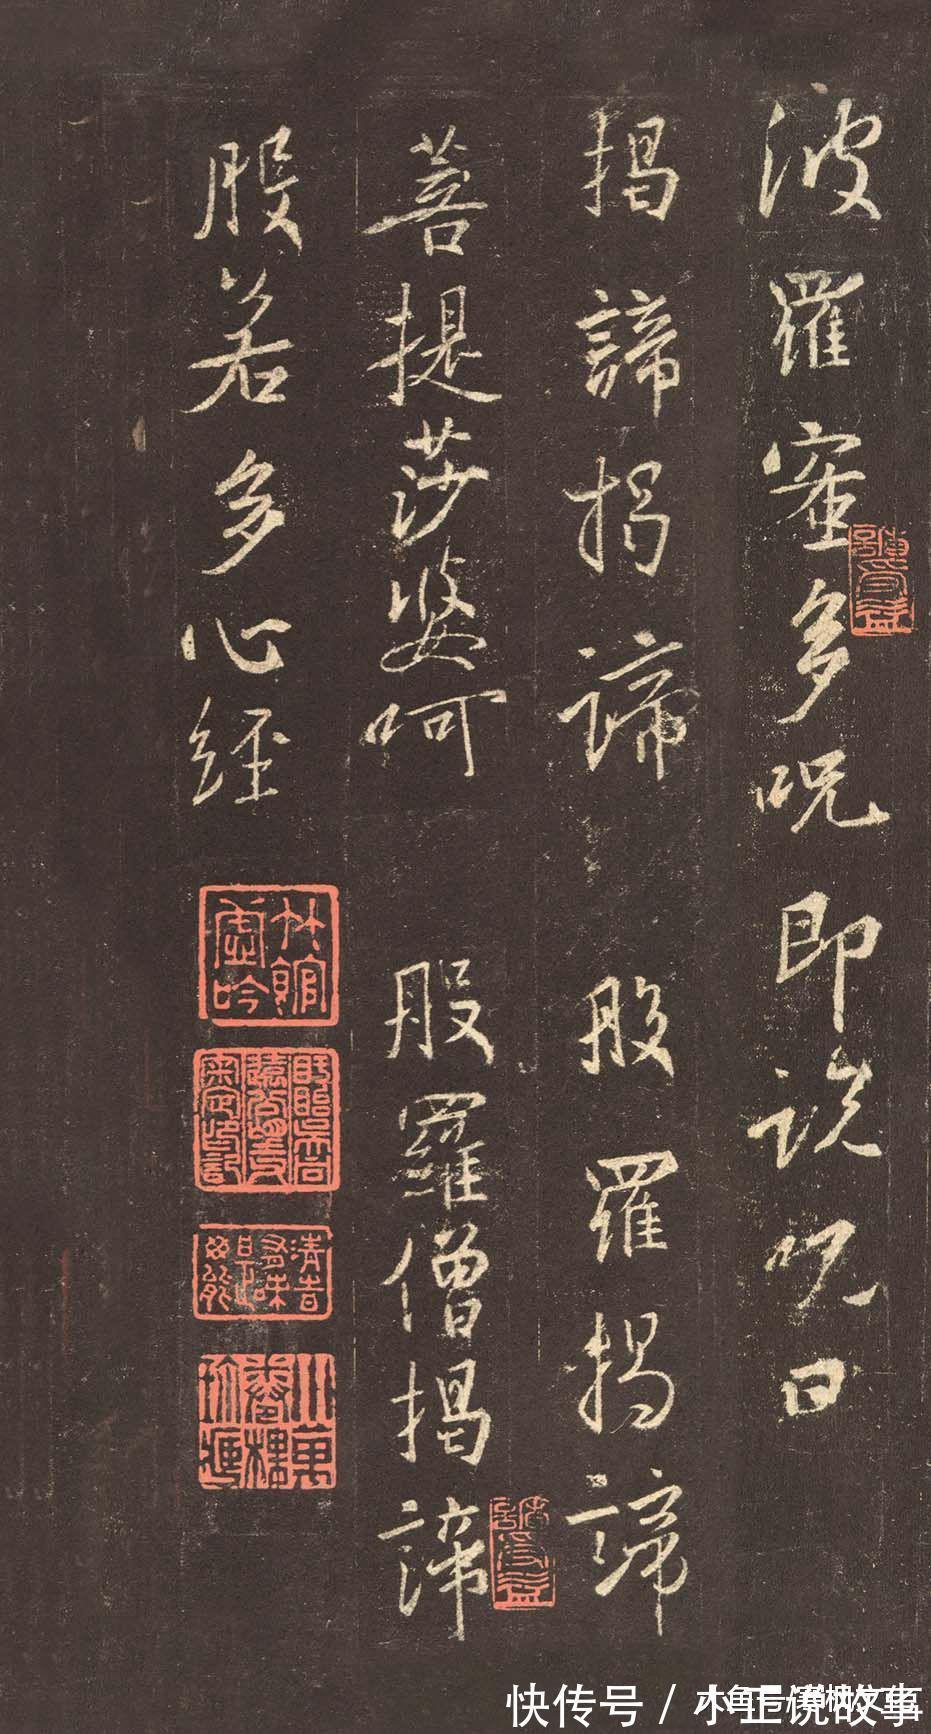 波羅蜜多呪即說呪曰
揭諦揭諦 般羅揭諦
菩提莎婆呵 般羅僧揭諦
般若多心經
快传号 / 小正说故事